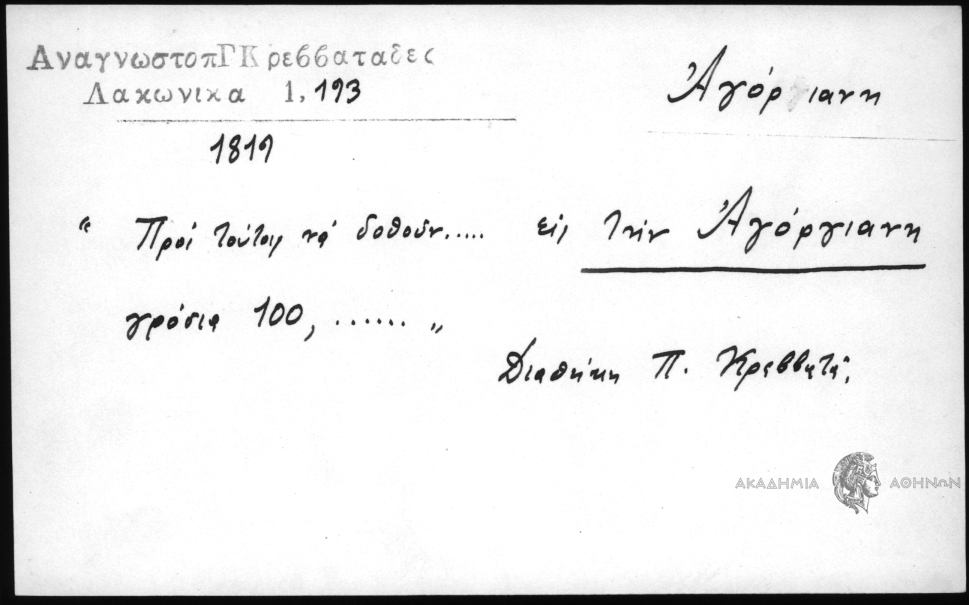 ΑναγνωστοπΓΚρεββαταδες
Λακωνικα 1, 193
Ἀγόρ ιανη
1819
“ Πρὸς τούτοις νά δοθοῦν..... εἰς τήν Ἀγόργιανη
γρόσια 100, ...... „
Διαθήκη Π. Κρεββατᾶ,
ΑΚΑΔΗΜΙΑ ΑΘΗΝΩΝ